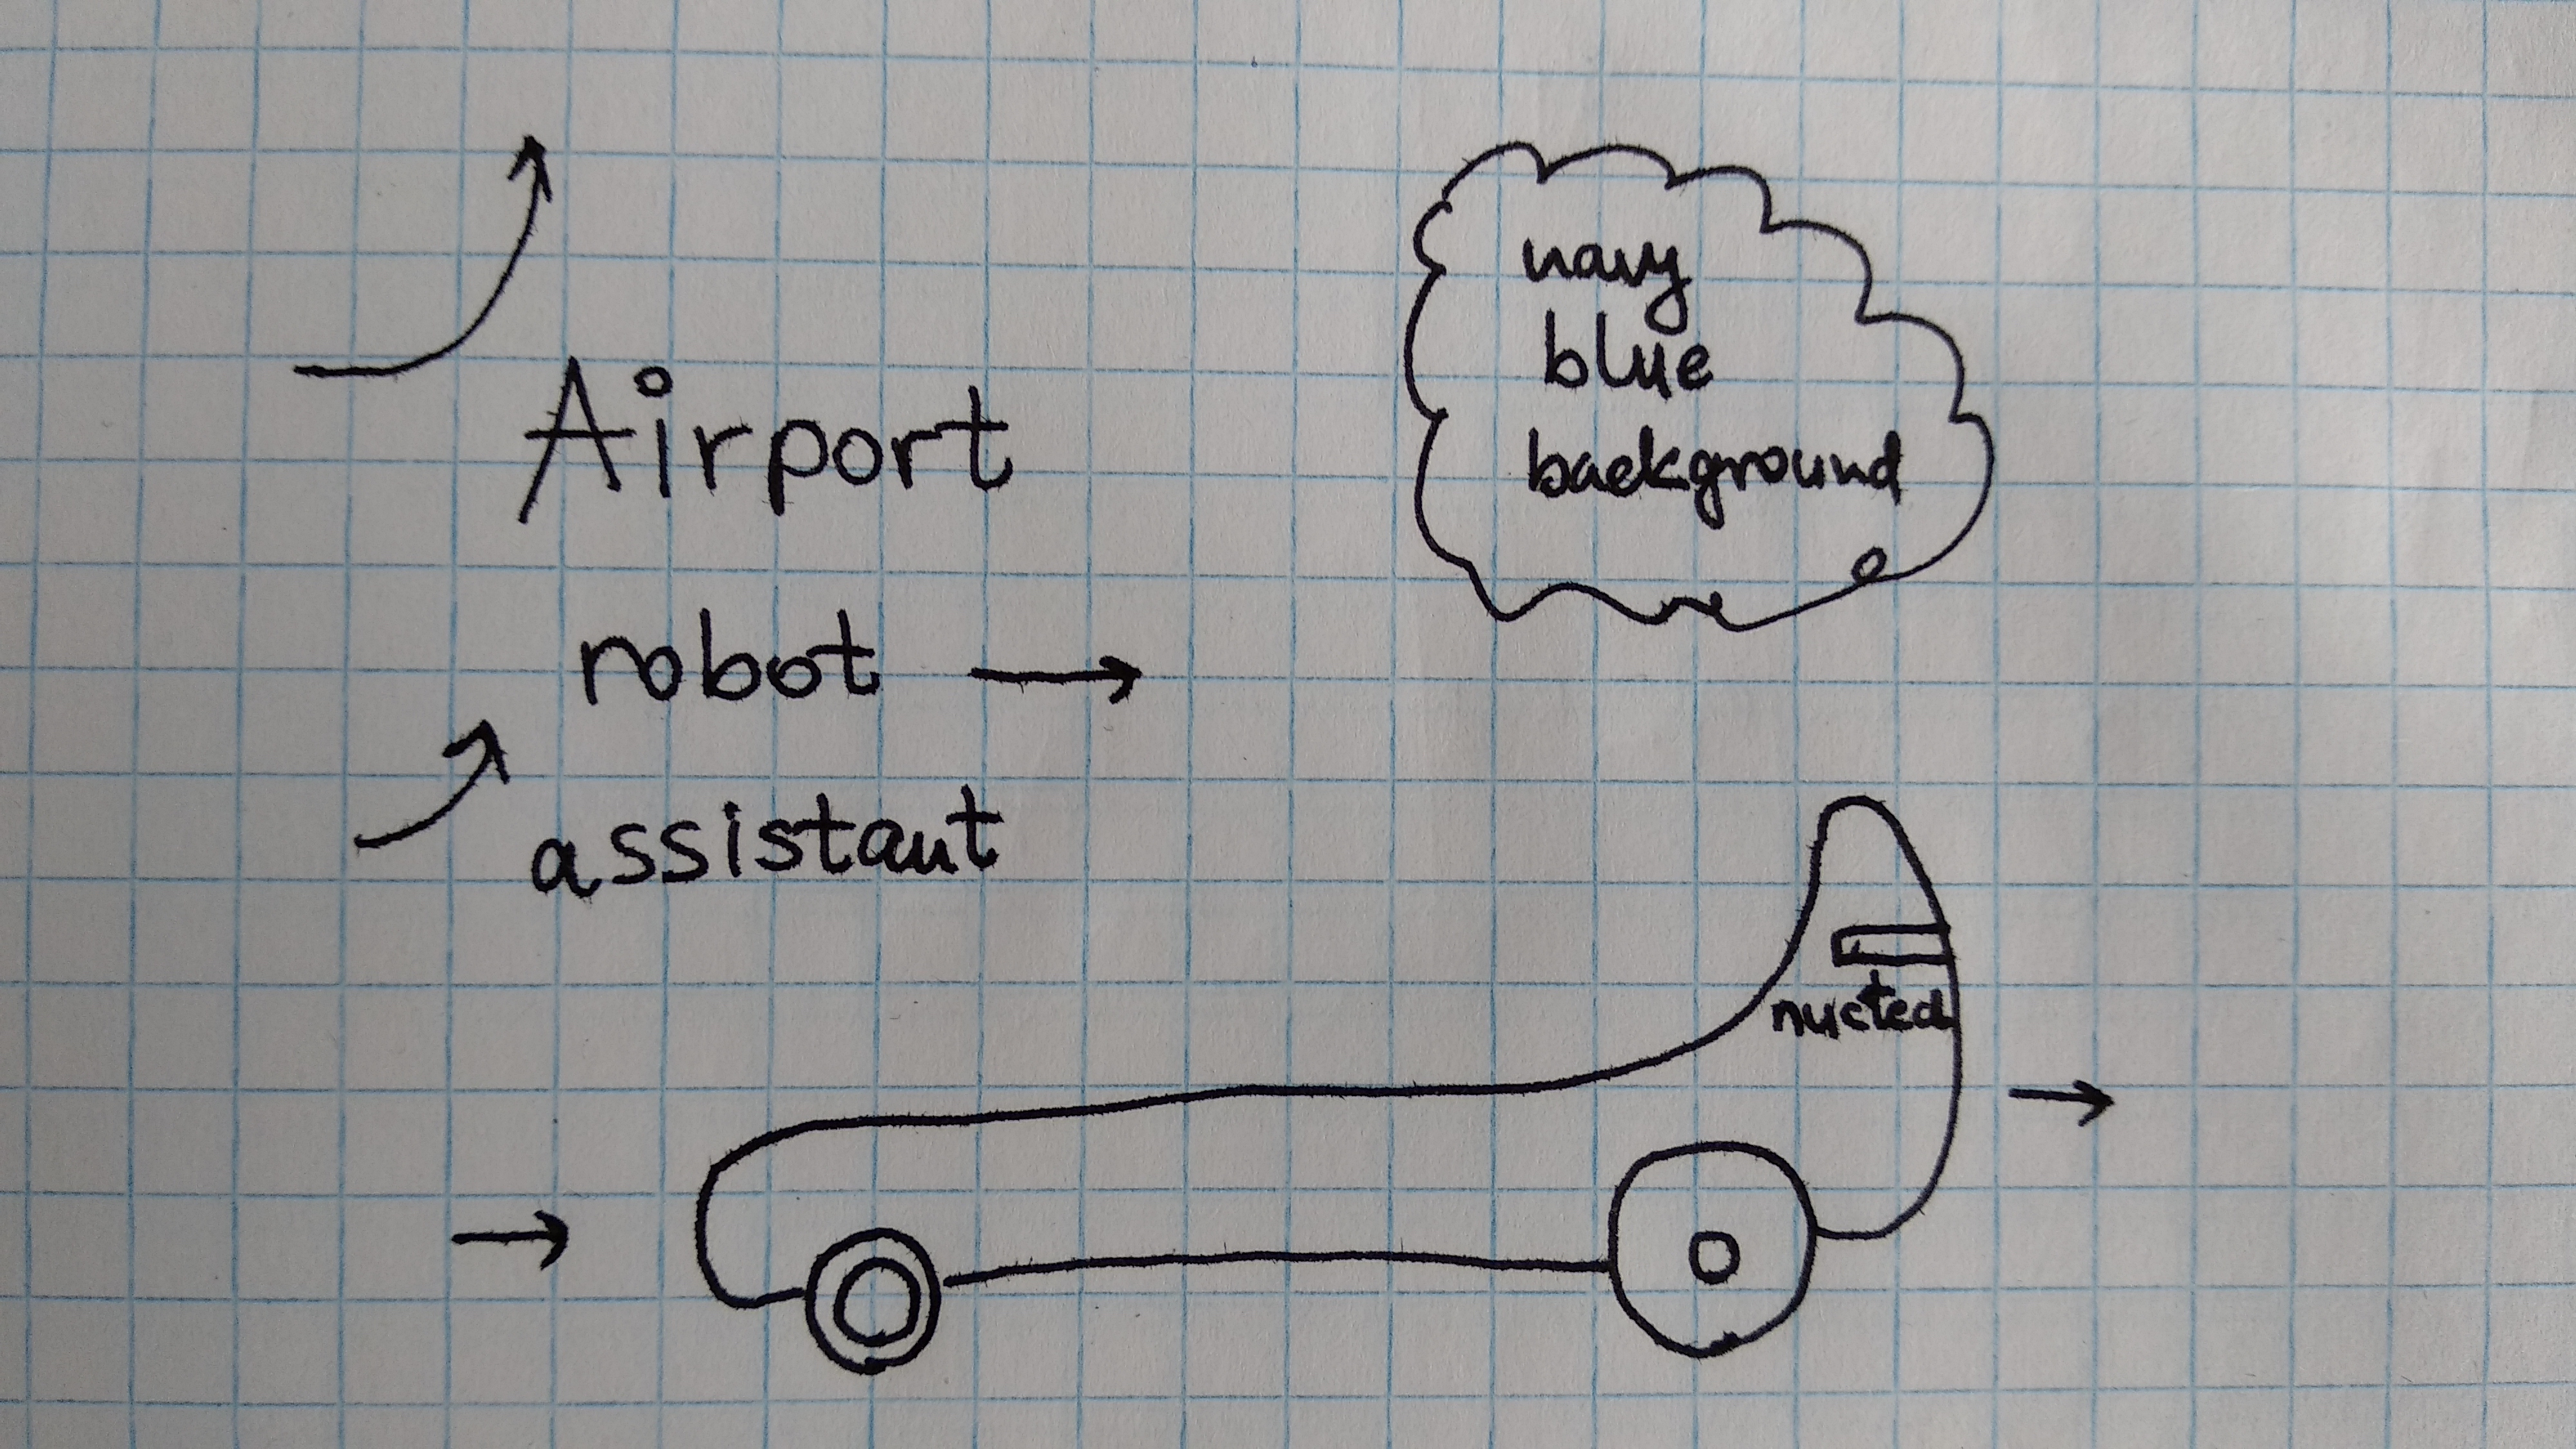 Airport
robot
assistant
navy
blue
background
nucted